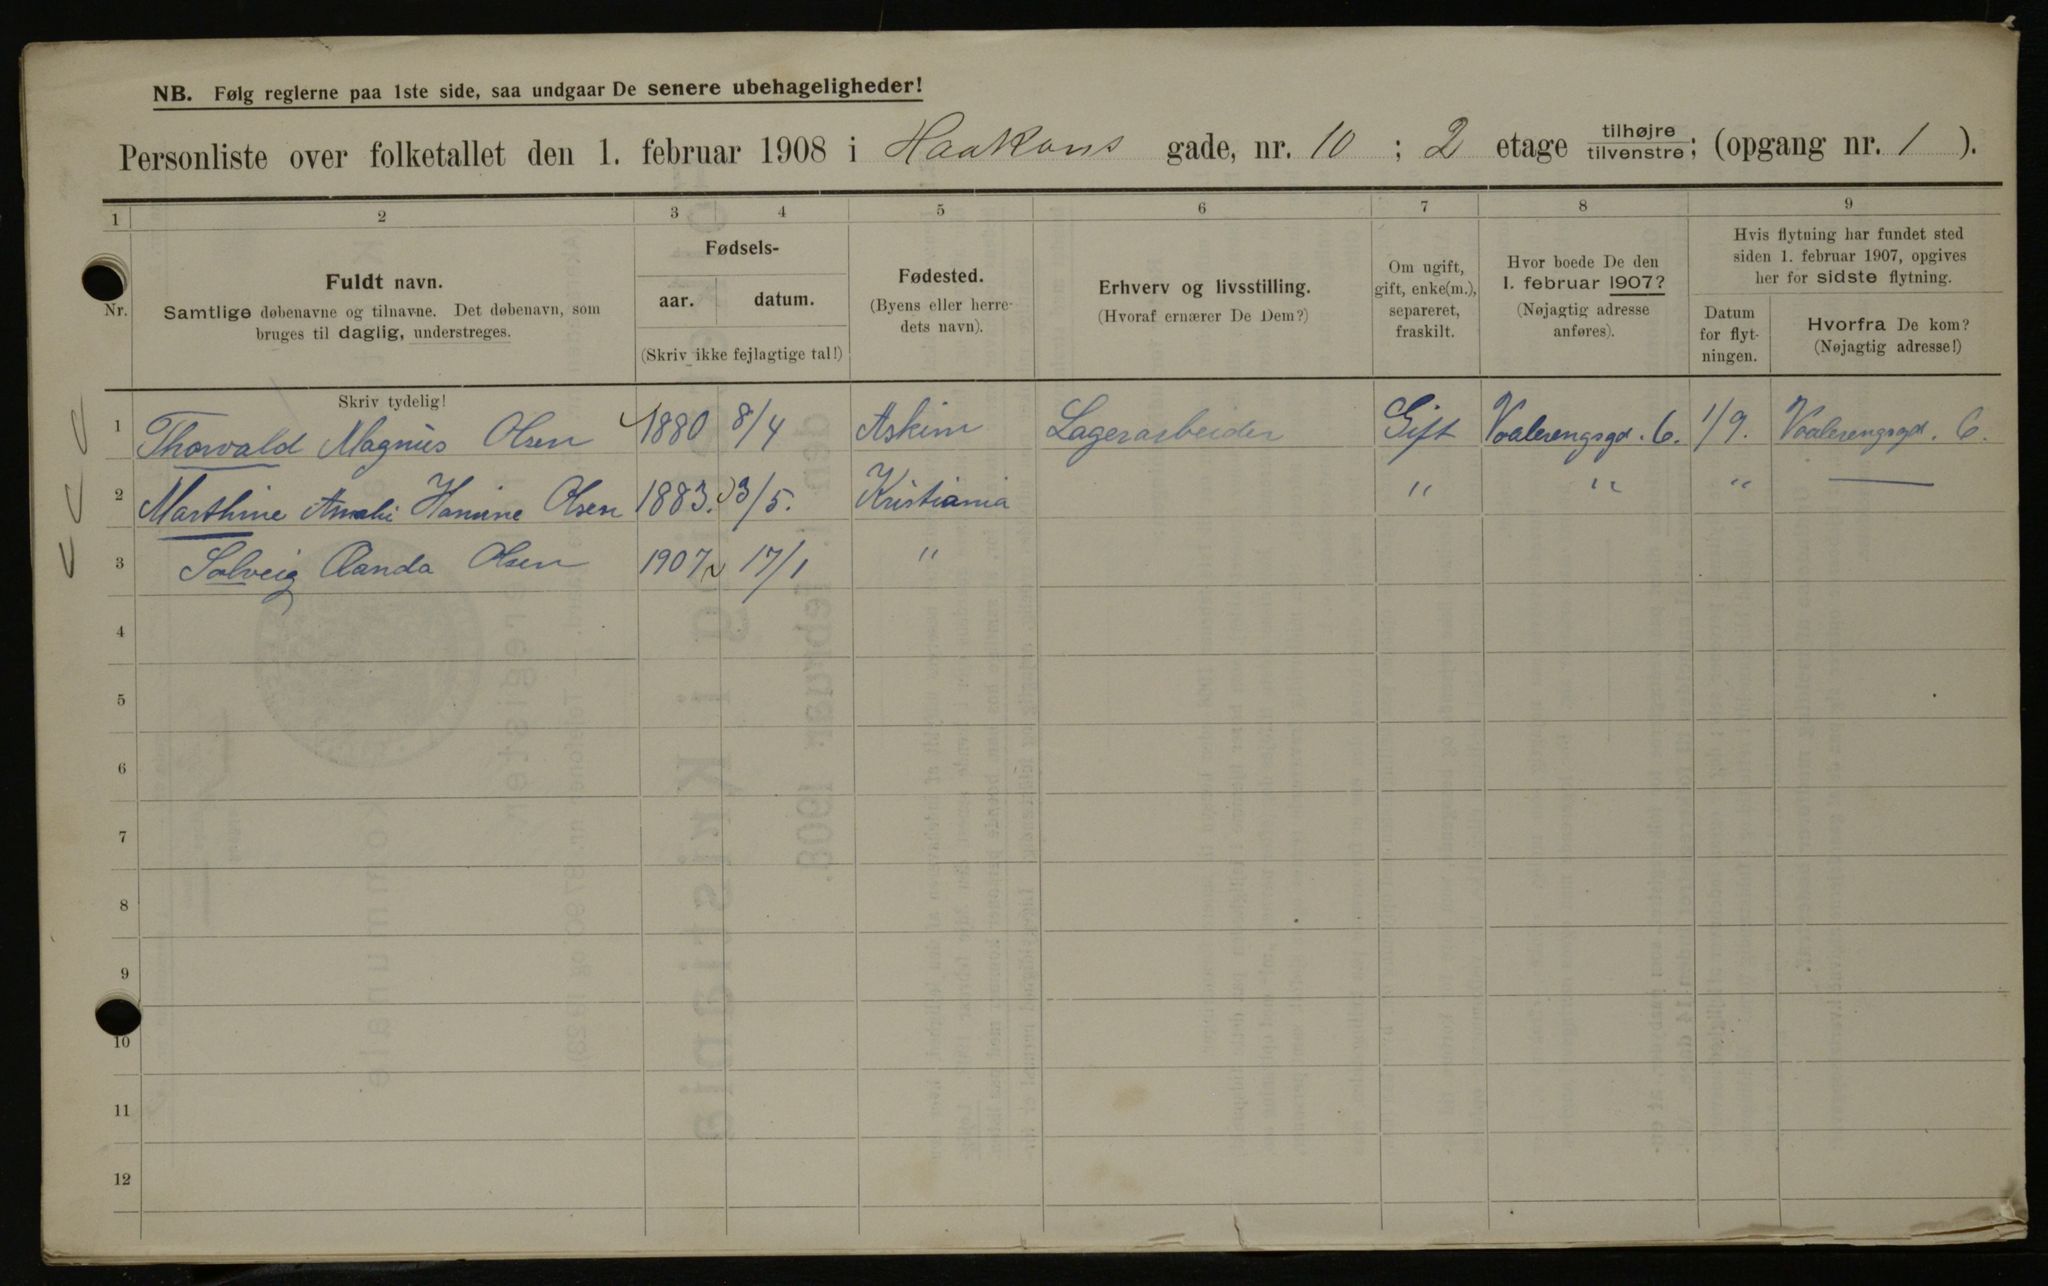 NB. Følg reglerne paa 1ste side, saa undgaar De senere ubehageligheder!
Personliste over folketallet den 1. februar 1908 i Haakons gade, nr. 10 ; 2 etage tilhøjre tilvenstre; (opgang nr. 1 ).
1 2 3 4 5 6 7 8 9
Nr.
Fuldt navn.
Samtlige døbenavne og tilnavne. Det døbenavn, som
bruges til daglig, understreges.
Fødsels-
aar. datum.
(Skriv ikke fejlagtige tal!)
Fødested.
(Byens eller herre-
dets navn).
Erhverv og livsstilling.
(Hvoraf ernærer De Dem?)
Om ugift,
gift, enke(m.),
separeret,
fraskilt.
Hvor boede De den
1. februar 1907?
(Nøjagtig adresse
anføres).
Hvis flytning har fundet sted
siden 1. februar 1907, opgives
her for sidste flytning.
Datum
for flyt-
ningen.
Hvorfra De kom?
(Nøjagtig adresse!)
Skriv tydelig!
1 Thorvald Magnus Olsen 1880 8/4 Askim Lagerarbeider Gift Vaalerengsgd. 6. 1/9. Vaalerengsgd. 6.
2 Marthine Amalie Olsen 1883. 3/5. Kristiania " " " —
3 Solveig Olsen 1907 17/1 "
4
5
6
7
8
9
10
11
12